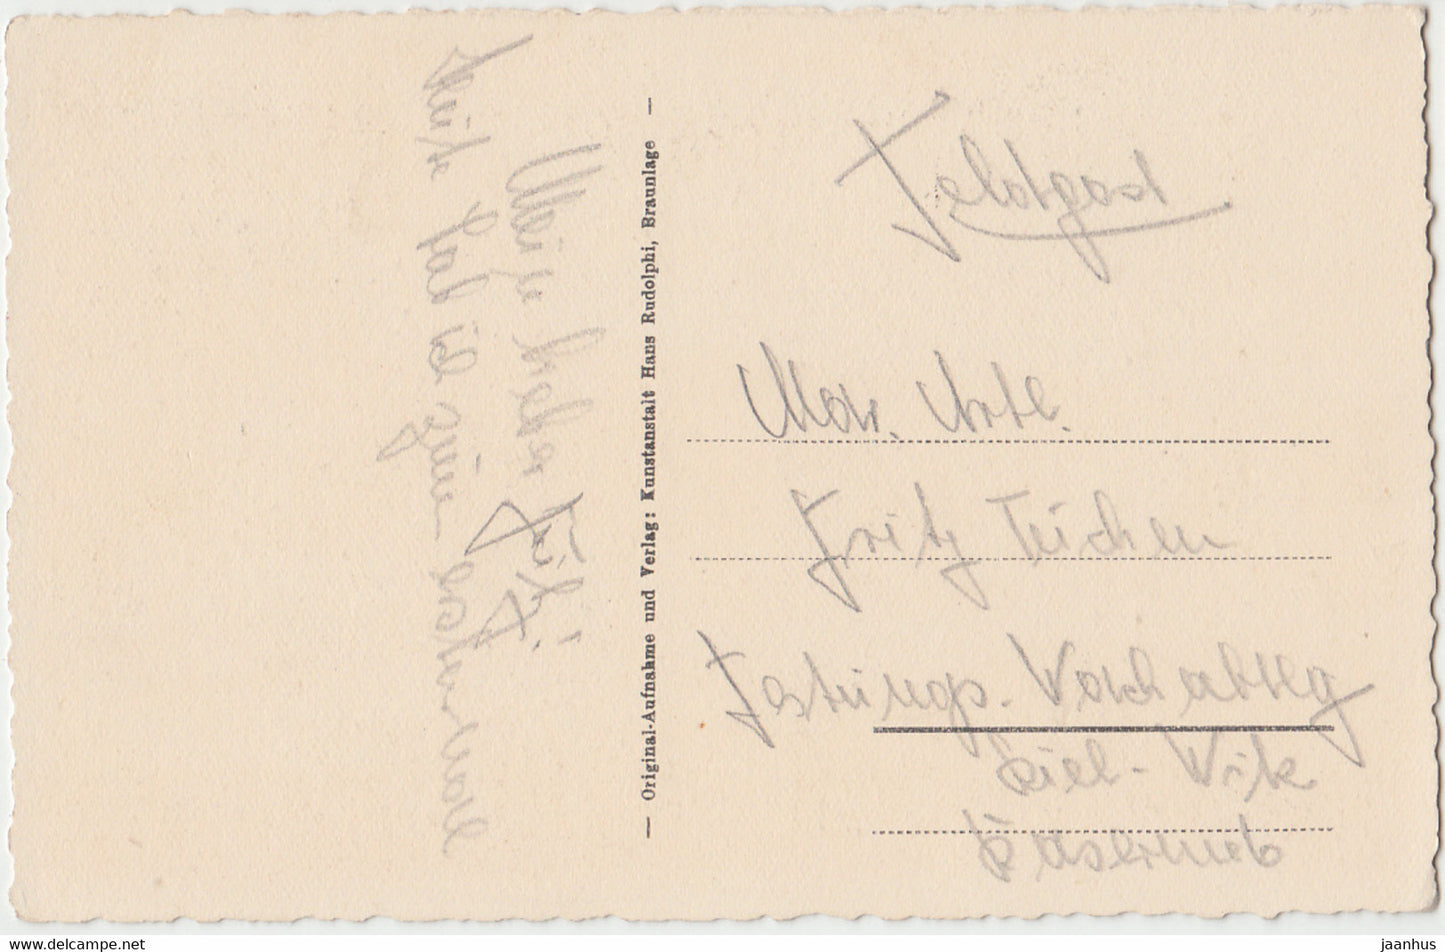 Meine liebe Fritz!
Heute hab ich zum erstenmal
— Original-Aufnahme und Verlag: Kunstanstalt Hans Rudolphi, Braunlage —
Feldpost
Matr. Artl.
Fritz Teichen
Festungs-
Kiel-Wik
delcampe.net
jaanhus